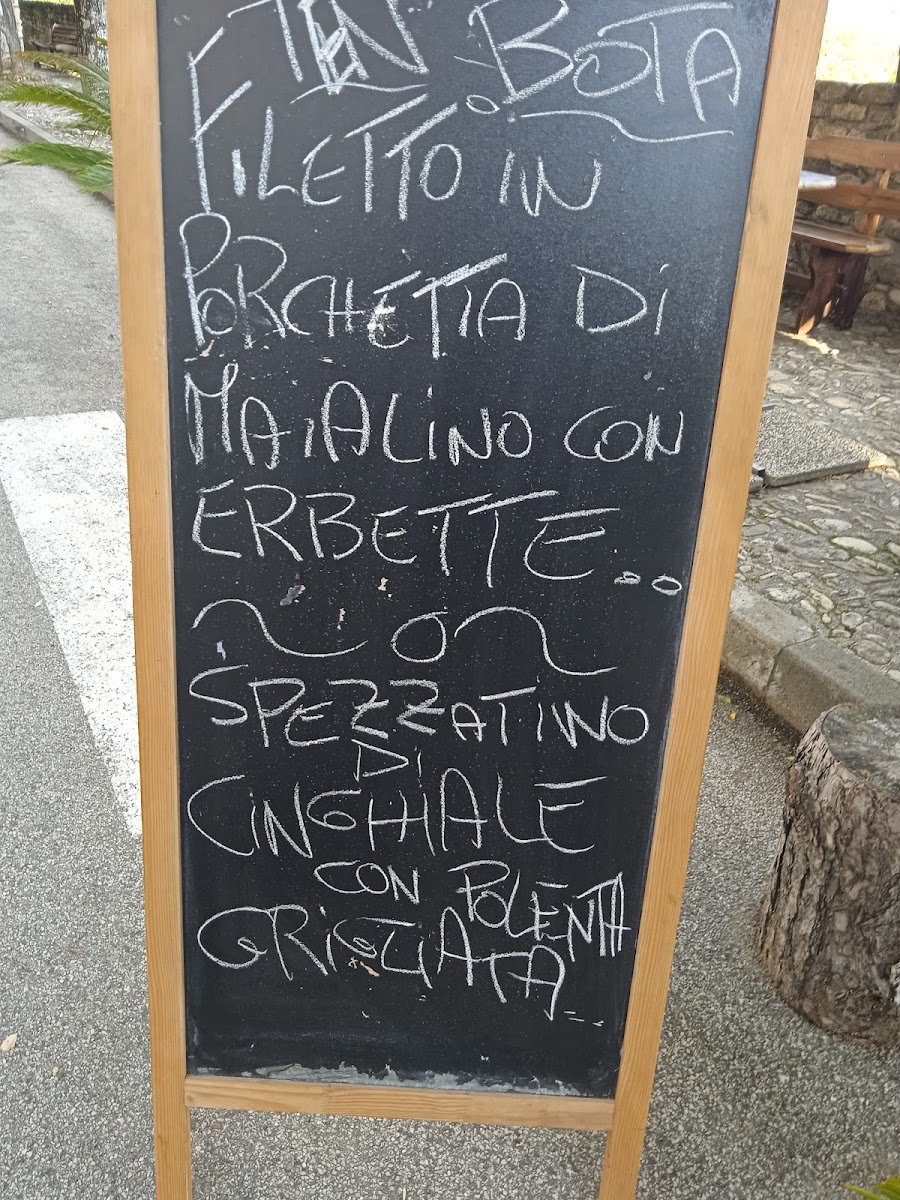 TEN BOTA
FILETTO IN
PORCHETTA DI
MAIALINO CON
ERBETTE..
SPEZZATINO
DI
CINGHIALE
CON POLENTA
GRIGLIATA...